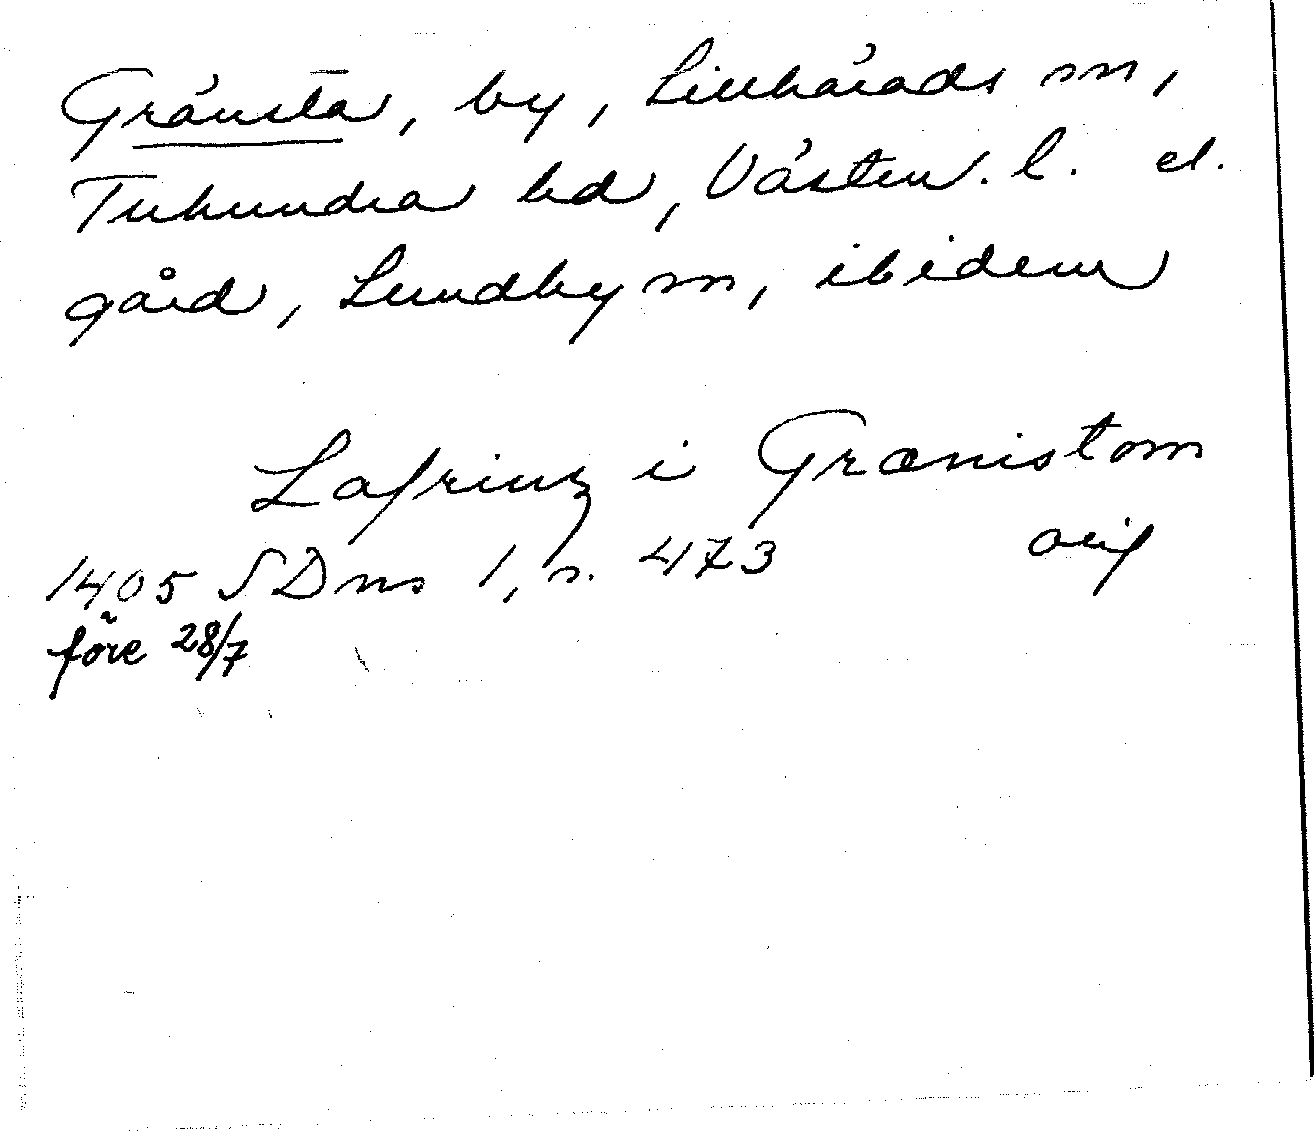 Gränsta, by, Lillhärads sn,
Tuhundra hd, Västm. l. el.
gård, Lundby sn, ibidem
Lafrinz i Grænistom
1405 SDns 1, s. 473 orig
före 28/7